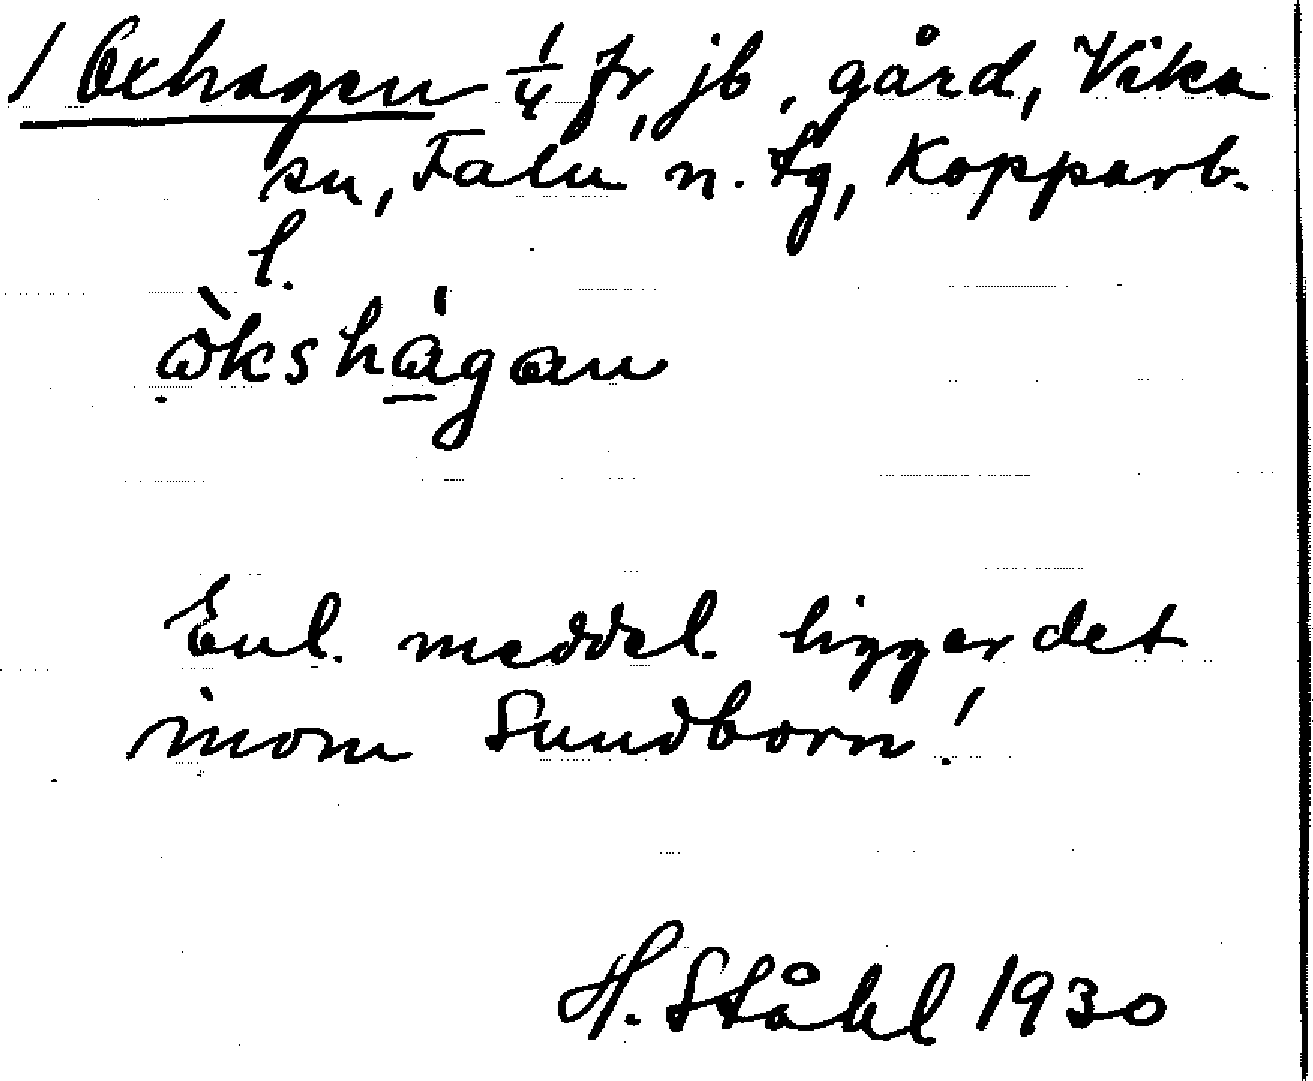 1 Oxhagen 1/4 fr, jb, gård, Vika
sn, Falu n. tg, Kopparb.
l.
ὼkshágan
Enl. meddel. ligger det
inom Sundborn!
H. Ståhl 1930